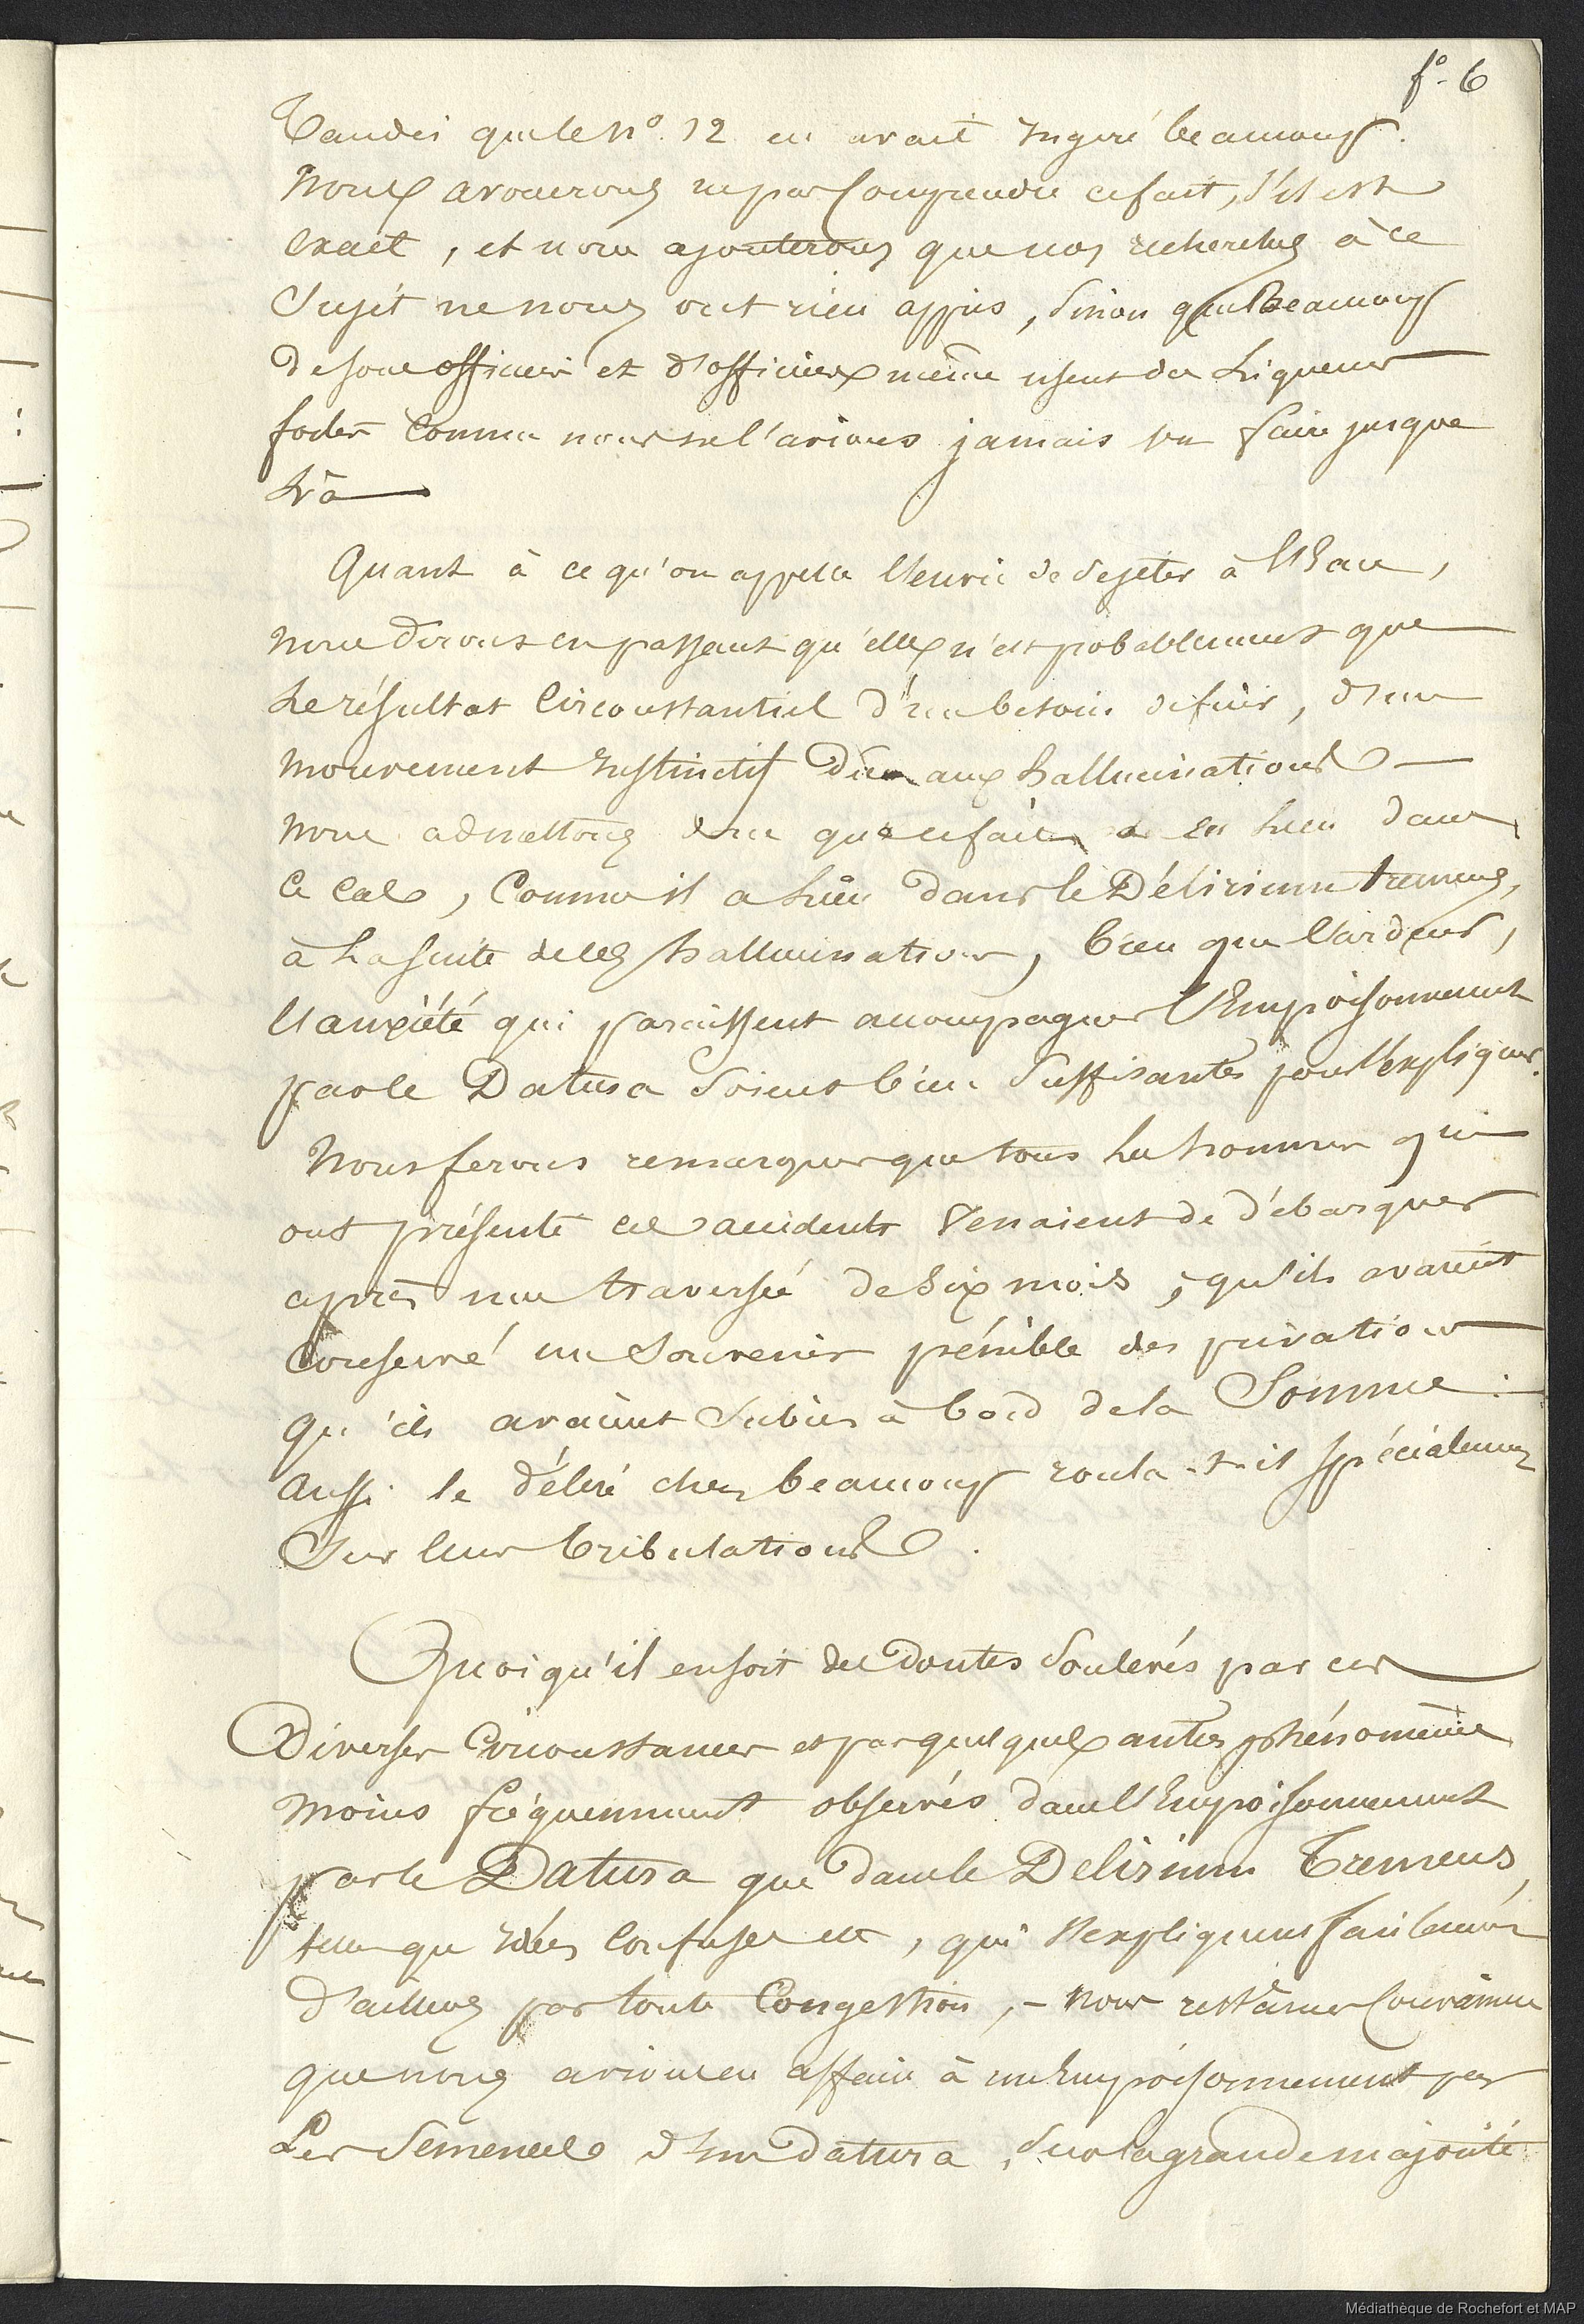 fo. 6
Tandis que le No. 12 en avait Ingéré beaucoup.
Nous avouerons ne pas Comprendre ce fait, s'il est
Exact, et nous ajouterons que nos recherches à ce
Sujet ne nous ont rien appris, Sinon que Beaucoup
de sous officiers et d'officiers même usent des Liqueurs
fortes comme nous ne l'avions jamais vu faire jusque
Là
Quant à ce qu'on appelle l'envie de se jeter à l'Eau,
Nous dirons en passant qu'elle n'est probablement que
Le résultat Circonstantiel d'un besoin de fuir, d'un
Mouvement Instinctif dû aux hallucinations
Nous admettons que ce fait a eu Lieu dans
Ce Cas, Comme il a Lieu dans le Délirium tremens,
à La suite des hallucinations, bien que l'ardeur,
l'anxiété qui paraissent accompagner l'Empoisonnement
par le Datura Soient bien Suffisantes pour l'expliquer.
Nous ferons remarquer que tous Les hommes qui
ont présenté ces accidents Venaient de débarquer
après une traversée de Six mois, qu'ils avaient
Conservé un Souvenir pénible des privations
qu'ils avaient Subies à bord de la Somme :
aussi le délire chez beaucoup roula-t-il Spécialement
Sur leurs tribulations.
Quoiqu'il en soit des Doutes Soulevés par ces
Diverses Circonstances et par quelques autres phénomènes
Moins fréquemment observés dans l'Empoisonnement
par le Datura que dans le Delirium Tremens,
telles que Idées Confuses etc, qui s'expliquent facilement
d'ailleurs par toute Congestion, - Nous restâmes Convaincu
que nous avions eu affaire à un Empoisonnement par
Les Semences d'un Datura, Sur la grande majorité
Médiathèque de Rochefort et MAP